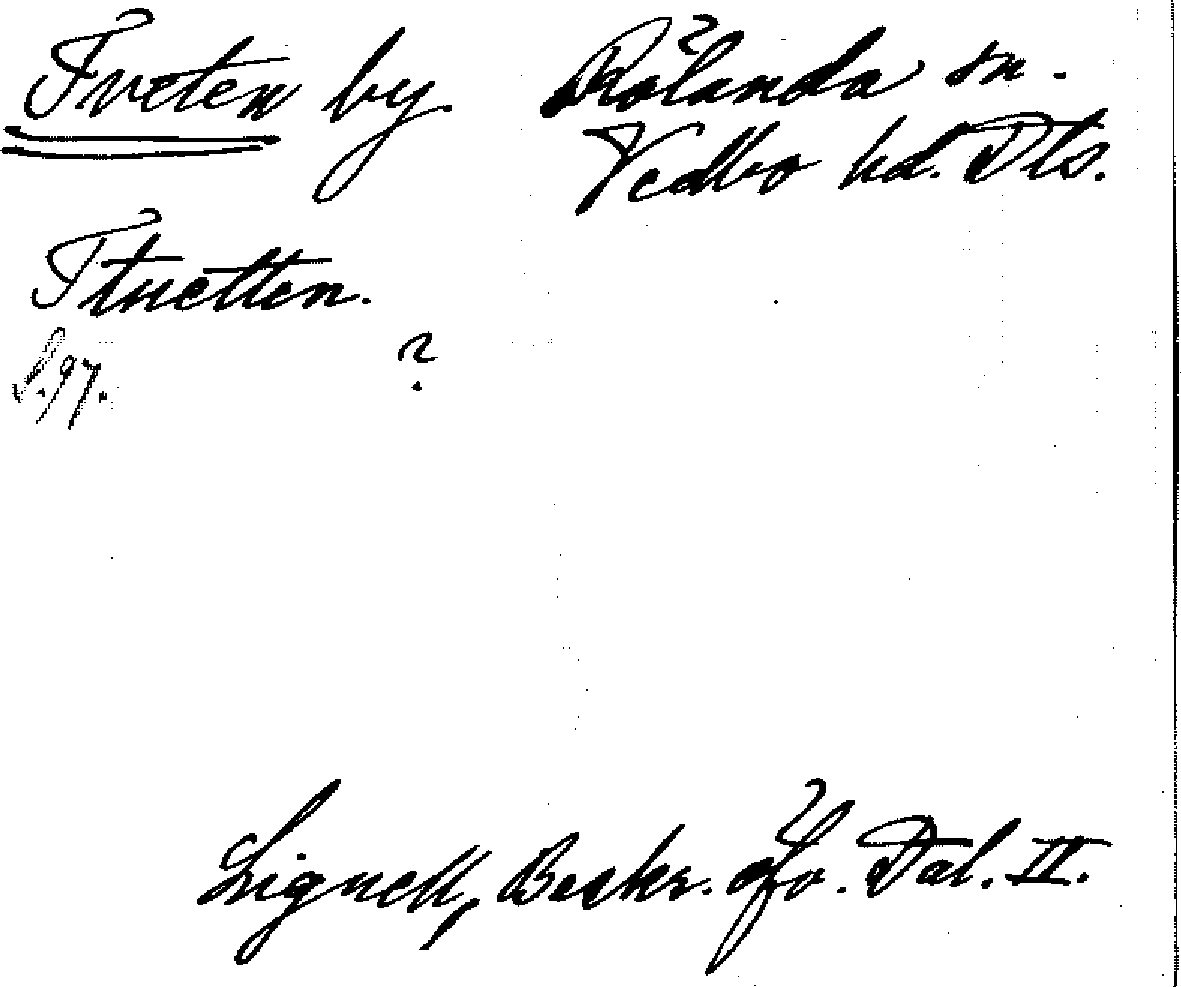 Tveten by Rölanda sn.
Vedbo hd. Dls.
Ttuetten.
S. 97. ?
Lignell, Beskr. öfv. Dal. II.